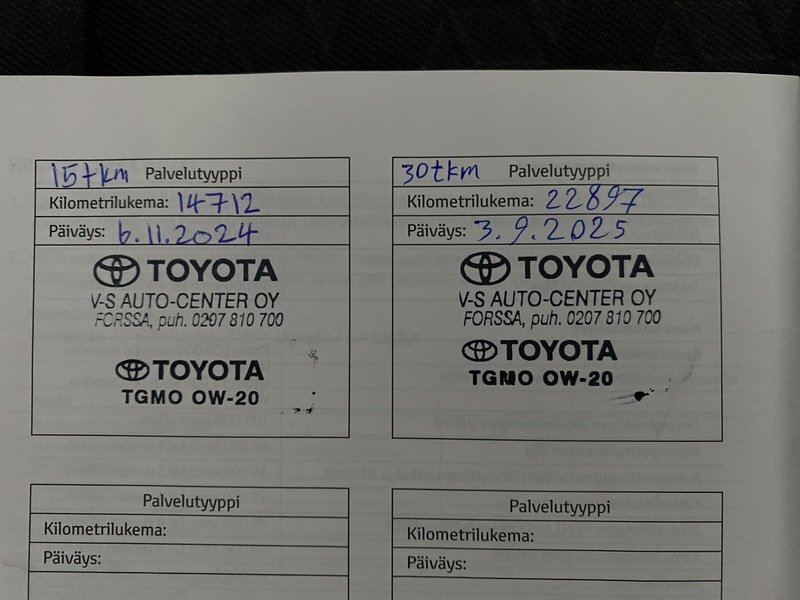 15tkm Palvelutyyppi
Kilometrilukema: 14712
Päiväys: 6.11.2024
TOYOTA
V-S AUTO-CENTER OY
FORSSA, puh. 0207 810 700
TOYOTA
TGMO 0W-20
30tkm Palvelutyyppi
Kilometrilukema: 22897
Päiväys: 3.9.2025
TOYOTA
V-S AUTO-CENTER OY
FORSSA, puh. 0207 810 700
TOYOTA
TGMO 0W-20
Palvelutyyppi
Kilometrilukema:
Päiväys:
Palvelutyyppi
Kilometrilukema:
Päiväys: